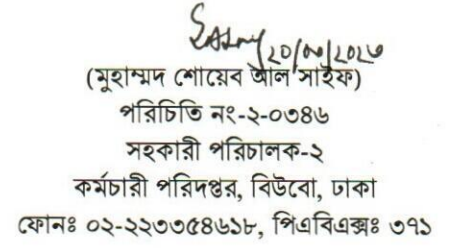 ২০/০৮/২০২৩
(মুহাম্মদ শোয়েব আল সাইফ)
পরিচিতি নং-২-০৩৪৬
সহকারী পরিচালক-২
কর্মচারী পরিদপ্তর, বিউবো, ঢাকা
ফোনঃ ০২-২২৩৩৫৪৬১৮, পিএবিএক্সঃ ৩৭১